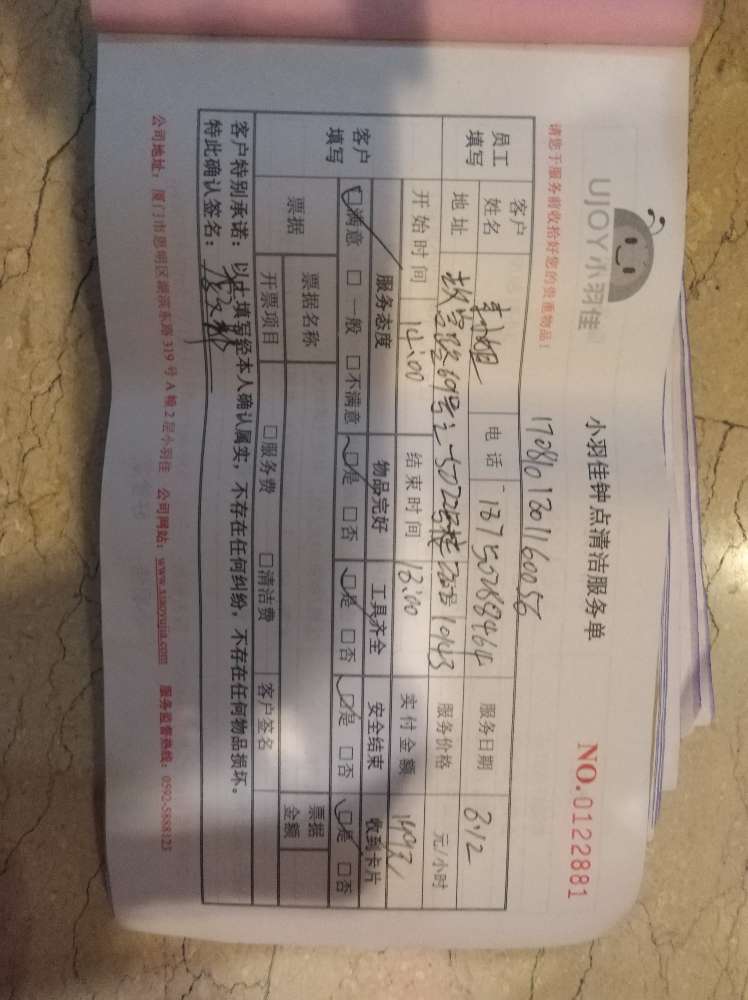 UJOY小羽佳
小羽佳钟点清洁服务单
NO.0122881
请您于服务前收拾好您的贵重物品！
员工填写
客户姓名
电话
服务日期 8.12
地址
服务价格 元/小时
开始时间 14:00 结束时间 18:00 实付金额
客户填写
服务态度 物品完好 工具齐全 安全结束 收到卡片
□满意 □一般 □不满意 □是 □否 □是 □否 □是 □否 □是 □否
票据 票据名称 票据金额
开票项目 □服务费 □清洁费 客户签名
客户特别承诺：以上填写经本人确认属实，不存在任何纠纷，不存在任何物品损坏。
特此确认签名：
公司地址：厦门市思明区湖滨东路319号A幢2层小羽佳 公司网站：www.xiaoyujia.com 服务监督热线：0592-5888123